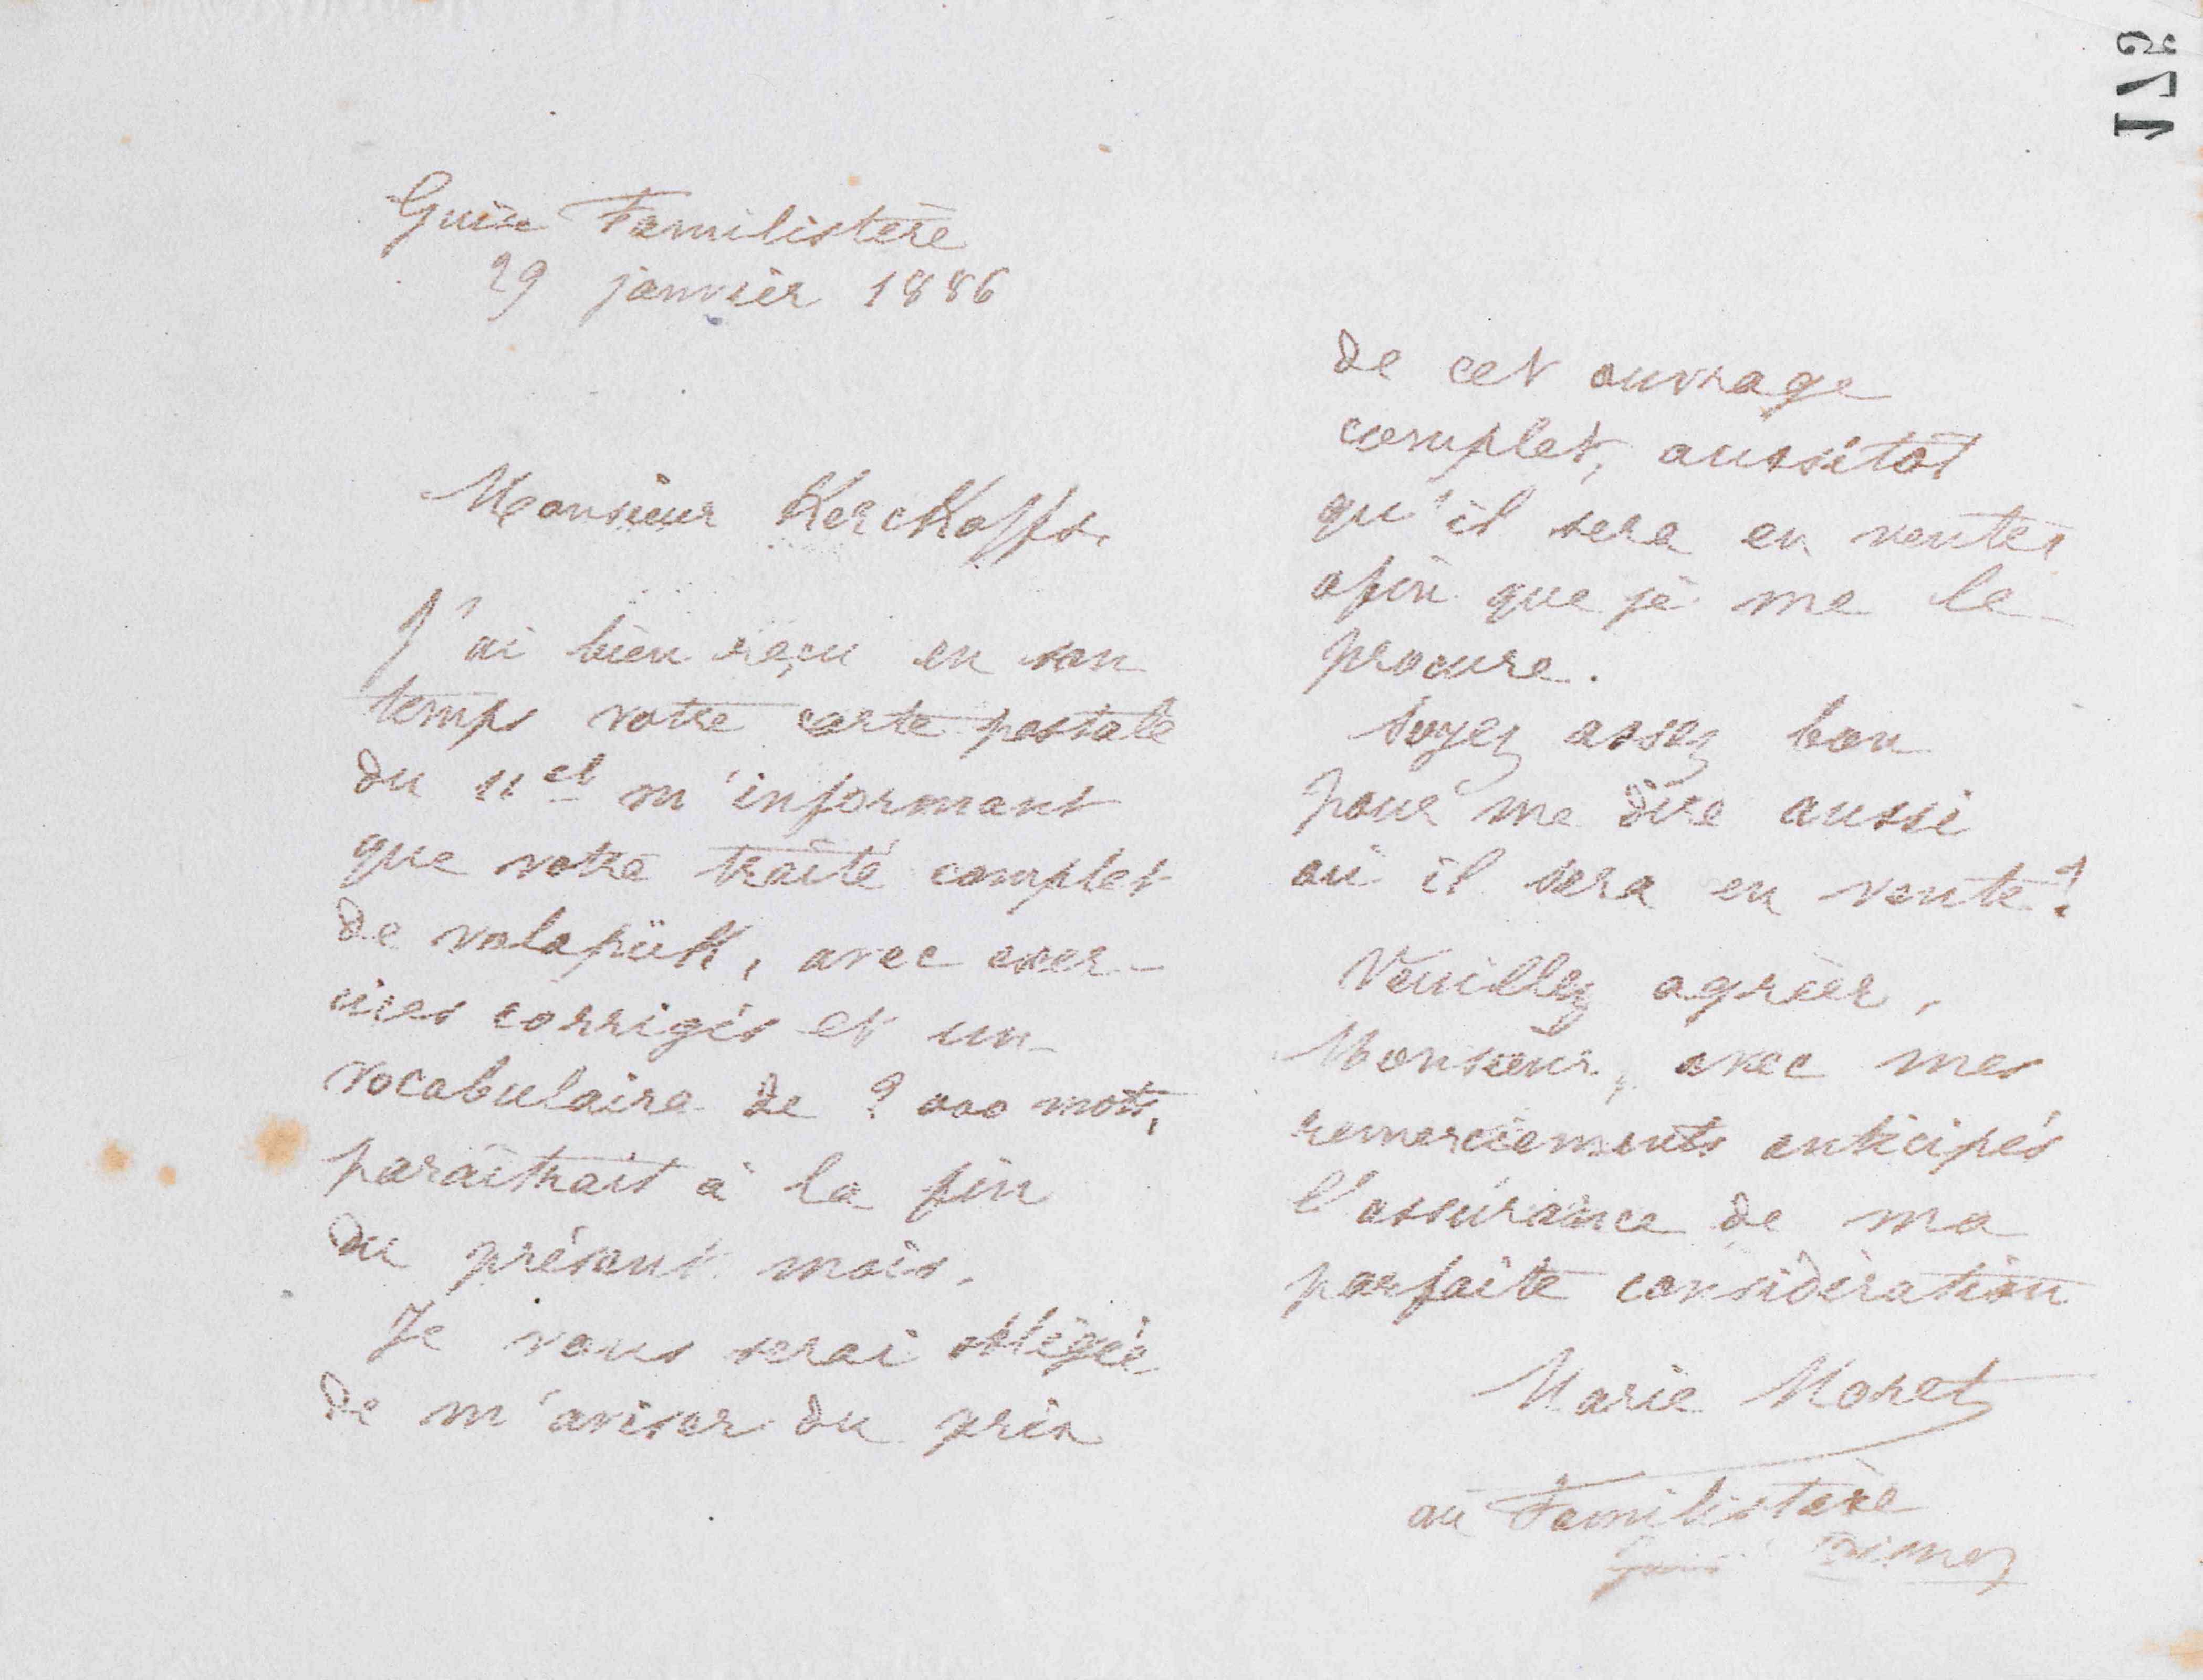 122
Guise Familistère
29 janvier 1886
Monsieur Kerckhoffs,
J'ai bien reçu en son
temps votre carte postale
du 11 ct m'informant
que votre traité complet
de volapük, avec exer-
cices corrigés et un
vocabulaire de ? 000 mots,
paraîtrait à la fin
du présent mois.
Je vous serai obligée
de m'aviser du prix
de cet ouvrage
complet, aussitôt
qu'il sera en vente,
afin que je me le
procure.
Soyez assez bon
pour me dire aussi
où il sera en vente ?
Veuillez agréer,
Monsieur, avec mes
remerciements anticipés
l'assurance de ma
parfaite considération
Marie Moret
au Familistère
Guise